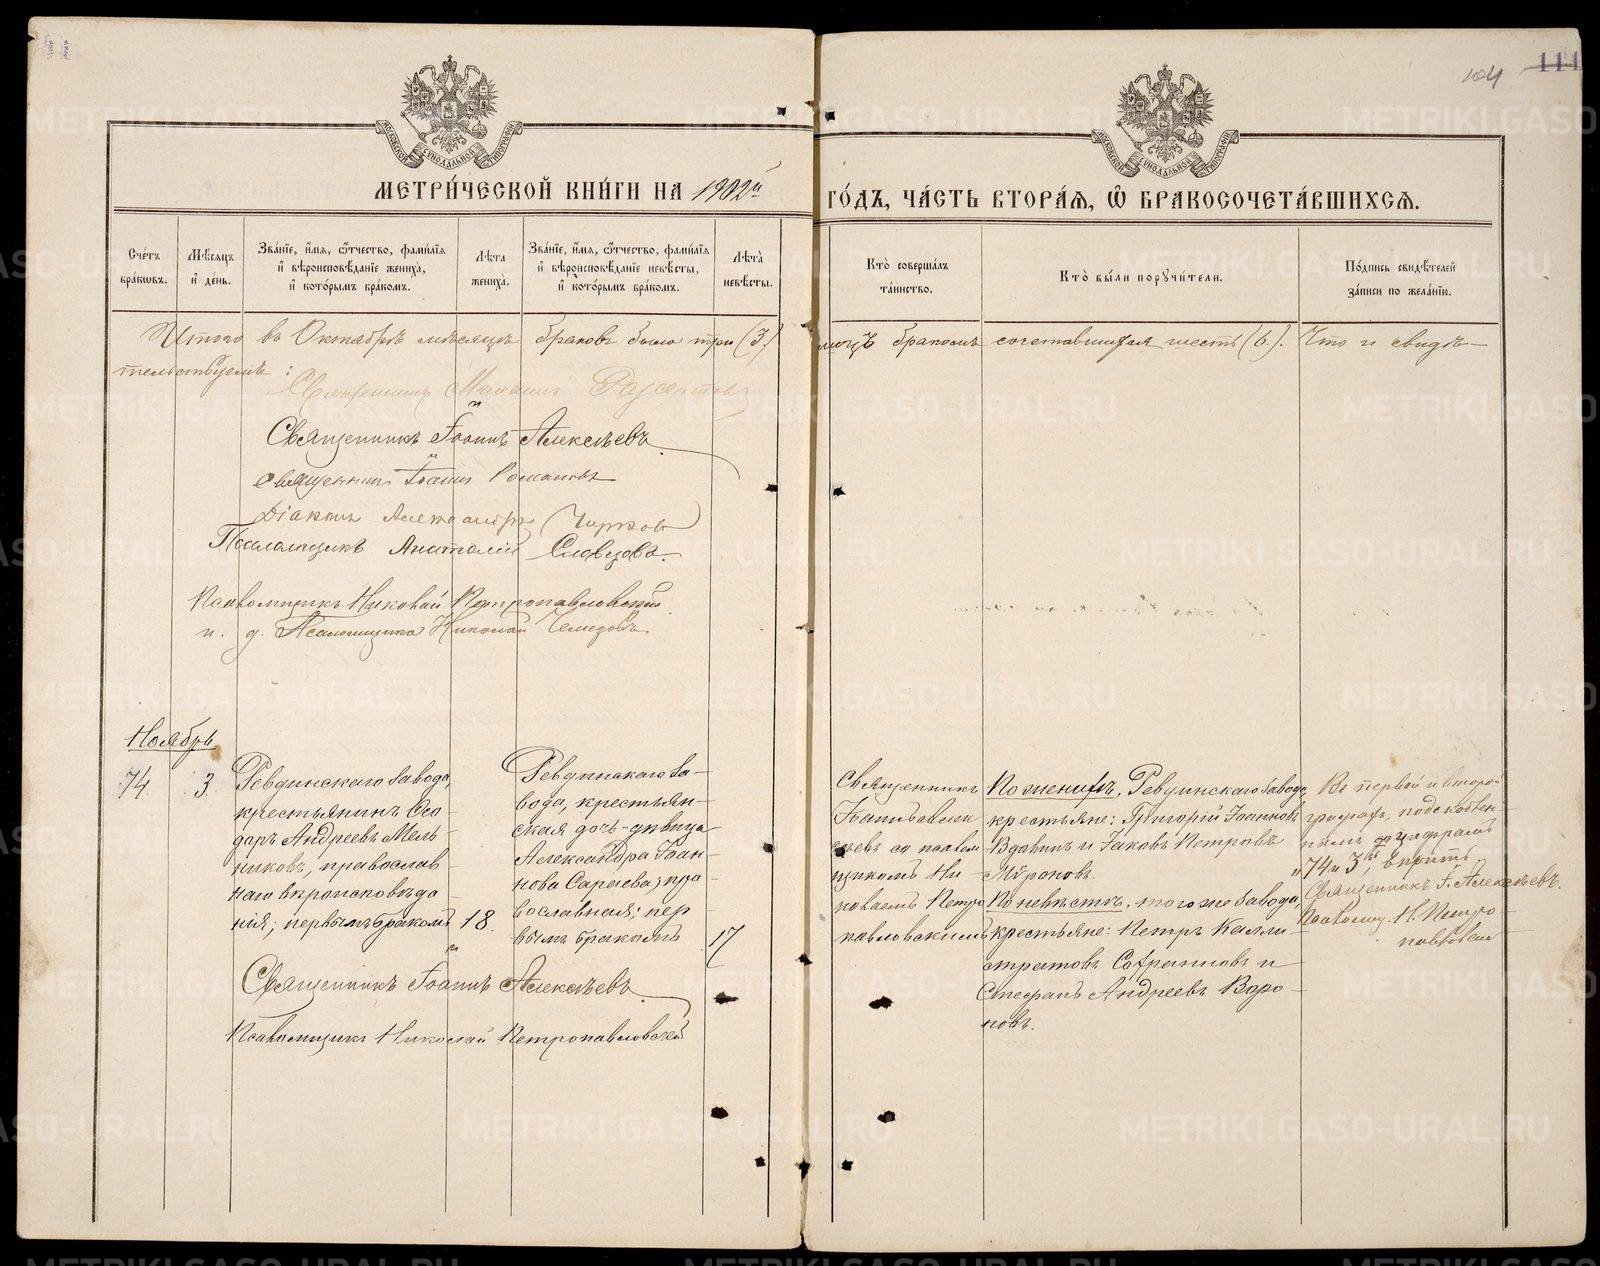 104 111
МЕТРИ́ЧЕСКОЙ КНИ́ГИ НА 1902й ГО́ДЪ, ЧА́СТЬ ВТОРА́Я, Ѡ҆ БРАКОСОЧЕТА́ВШИХСЯ.
Сче́тъ бра́ковъ.
Мѣ́сяцъ и҆ де́нь.
Зва́нїе, и҆́мя, ѻ҆́тчество, фами́лїя и҆ вѣроисповѣ́данїе жениха̀, и҆ кото́рымъ бра́комъ.
Лѣ́та жениха̀.
Зва́нїе, и҆́мя, ѻ҆́тчество, фами́лїя и҆ вѣроисповѣ́данїе невѣ́сты, и҆ кото́рымъ бра́комъ.
Лѣ́та невѣ́сты.
Кто̀ соверша́лъ та́инство.
Кто̀ бы́ли поручи́тели.
По́дпись свидѣ́телей за́писи по жела́нїю.
Итого въ Октябрѣ мѣсяцѣ браковъ было три (3.) лицъ бракомъ сочетавшихся шесть (6.). Что и свидѣ-
тельствуемъ:
Священникъ
Священникъ Іоаннъ Алексѣевъ
Священникъ Іоаннъ Романовъ
Діаконъ Александръ Чирковъ
Псаломщикъ Анатолій Словцовъ.
Псаломщикъ Николай Петропавловскій
и. д. Псаломщика Николай
Ноябрь
74.
3.
Ревдинскаго завода,
крестьянинъ Ѳео-
доръ Андреевъ Мель-
никовъ, православ
наго вѣроисповѣда
нія; первымъ бракомъ
18.
Ревдинскаго за-
вода, крестьян-
ская дочь-дѣвица
Александра Іоан-
нова Сараева; пра-
вославная; пер
вымъ бракомъ
17
Священникъ
Іоаннъ Алек
сѣевъ со псалом
щикомъ Ни-
колаемъ Петро
павловскимъ
По женихѣ, Ревдинскаго завода,
крестьяне: Григорій Іоанновъ
Вдовинъ и Іаковъ Петровъ
Мѵроновъ.
По невѣстѣ, того же завода,
крестьяне: Петръ Калли-
стратовъ Софроновъ и
Стефанъ Андреевъ Воро-
новъ.
Въ первой и второй
графахъ, подскоблен-
нымъ цифрамъ
„74 и 3", вѣрить
Священникъ І. Алексѣевъ.
Псаломщ. Н. Петро-
павловск
Священникъ Іоаннъ Алексѣевъ
Псаломщикъ Николай Петропавловскій
METRIKI.GASO-URAL.RU